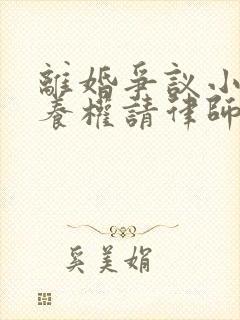 離婚爭議小
養權請律師
奚美娟